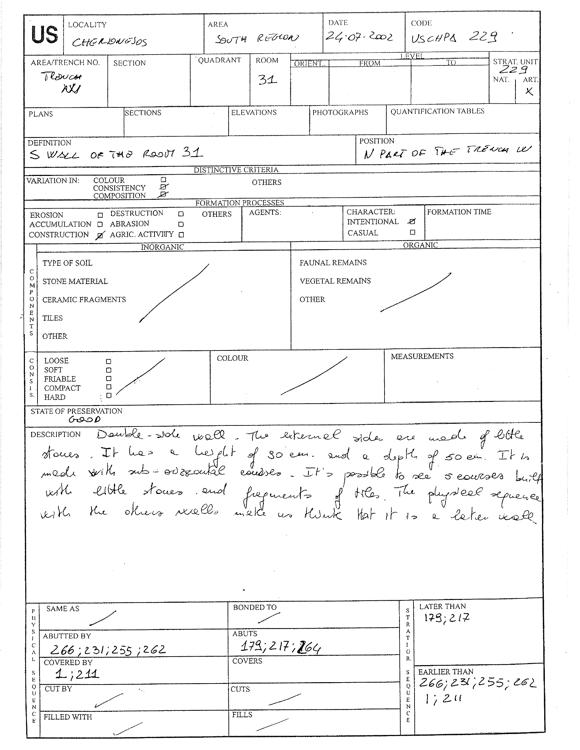 US
LOCALITY
CHERSONESOS
AREA
SOUTH REGION
DATE
24.07.2002
CODE
USCHPA 229
AREA/TRENCH NO.
TRENCH
SECTION
QUADRANT
ROOM
31
LEVEL
ORIENT. FROM TO
STRAT. UNIT
229
NAT. ART.
X
PLANS
SECTIONS
ELEVATIONS
PHOTOGRAPHS
QUANTIFICATION TABLES
DEFINITION
S WALL OF THE ROOM 31
POSITION
N PART OF THE TRENCH
DISTINCTIVE CRITERIA
VARIATION IN: COLOUR
CONSISTENCY
COMPOSITION
OTHERS
FORMATION PROCESSES
EROSION DESTRUCTION OTHERS
ACCUMULATION ABRASION
CONSTRUCTION AGRIC. ACTIVITY
AGENTS:
CHARACTER:
INTENTIONAL
CASUAL
FORMATION TIME
INORGANIC
ORGANIC
COMPONENTS
TYPE OF SOIL
STONE MATERIAL
CERAMIC FRAGMENTS
TILES
OTHER
FAUNAL REMAINS
VEGETAL REMAINS
OTHER
CONSIS.
LOOSE
SOFT
FRIABLE
COMPACT
HARD
COLOUR
MEASUREMENTS
STATE OF PRESERVATION
GOOD
DESCRIPTION Double-side wall. The external side are made of little
stones. It has a height of 30 cm. and a depth of 50 cm. It is
made with sub-orizontal courses. It's possible to see 5 courses built
with little stones and fragments of tiles. The physical sequence
with the others walls make us think that it is a later wall
PHYSICAL SEQUENCE
SAME AS
BONDED TO
ABUTTED BY
266;231;255;262
ABUTS
179;217;264
COVERED BY
1;211
COVERS
CUT BY
CUTS
FILLED WITH
FILLS
STRATIGR. SEQUENCE
LATER THAN
179;217
EARLIER THAN
266;231;255;262
1;211